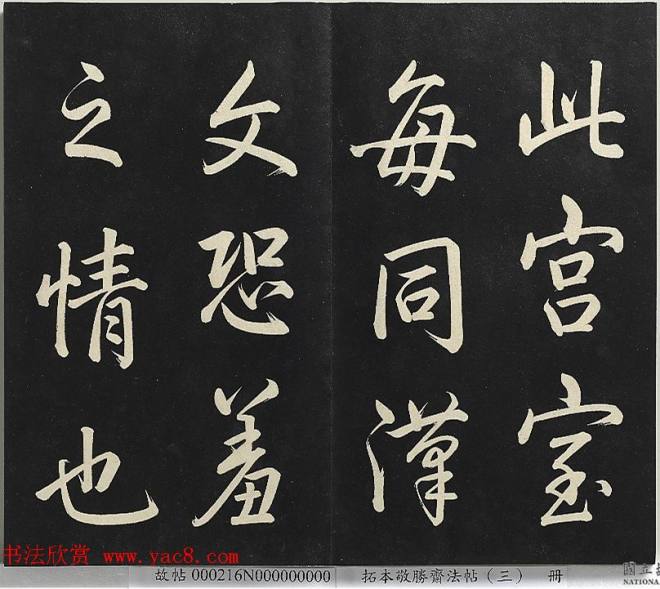 此宮室
每同漢
文恐羞
之情也
书法欣赏 www.yac8.com
故帖 000216N000000000 拓本敬勝齋法帖（三） 冊
國立
NATIONAL